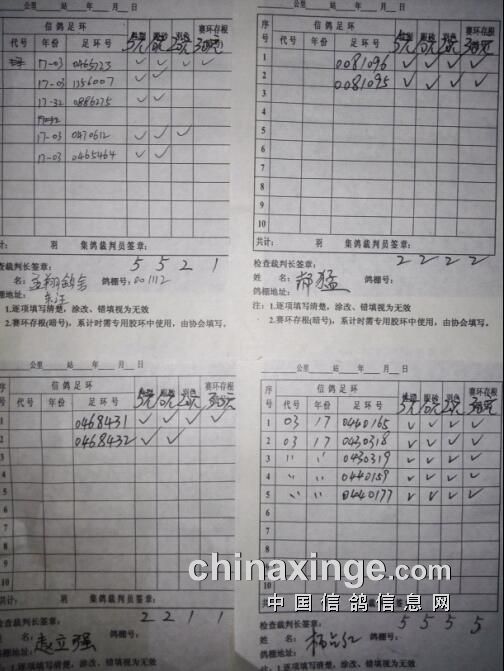 公里 站 年 月 日
信鸽足环 赛环存根
代号 年份 足环号 5元 10元 20元
17-03 0465223 ✓ ✓ ✓ ✓
17-03 1156007 ✓ ✓
17-32 0886275 ✓ ✓
17-03 0470612 ✓ ✓ ✓
17-03 0465464 ✓ ✓
共计: 羽 集鸽裁判员签章:
检查裁判长签章: 5 5 2 1
名: 鸽棚号: 001112
鸽棚地址:
1.逐项填写清楚,涂改、错填视为无效
2.赛环存根(暗号),累计时需专用胶环中使用,由协会填写。
公里 站 年 月 日
序号 信鸽足环 赛环存根
代号 年份 足环号 5元 10元 20元
1 0081096 ✓ ✓ ✓ ✓
2 0081095 ✓ ✓ ✓ ✓
3
4
5
6
7
8
9
10
共计: 羽 集鸽裁判员签章:
检查裁判长签章: 2 2 2 2
姓 名: 郝猛 鸽棚号:
鸽棚地址:
注: 1.逐项填写清楚,涂改、错填视为无效
2.赛环存根(暗号),累计时需专用胶环中使用,由协会填写。
公里 站 年 月 日
序号 信鸽足环 赛环存根
代号 年份 足环号 5元 10元 20元
1 0468431 ✓ ✓ ✓ ✓
2 0468432 ✓ ✓
3
4
5
6
7
8
9
10
共计: 羽 集鸽裁判员签章:
检查裁判长签章: 2 2 1 1
姓 名: 赵立强 鸽棚号:
鸽棚地址:
注: 1.逐项填写清楚,涂改、错填视为无效
公里 站 年 月 日
序号 信鸽足环 赛环存根
代号 年份 足环号 5元 10元 20元
1 03 17 0440165 ✓ ✓ ✓ ✓
2 03 17 0430318 ✓ ✓ ✓ ✓
3 〃 〃 0430319 ✓ ✓ ✓ ✓
4 〃 〃 0440159 ✓ ✓ ✓ ✓
5 〃 〃 0440177 ✓ ✓ ✓ ✓
6
7
8
9
10
共计: 羽 集鸽裁判员签章:
检查裁判长签章: 5 5 5 5
姓 名: 鸽棚号:
鸽棚地址:
注: 1.逐项填写清楚,涂改、错填视为无效
chinaxinge.com
中国信鸽信息网